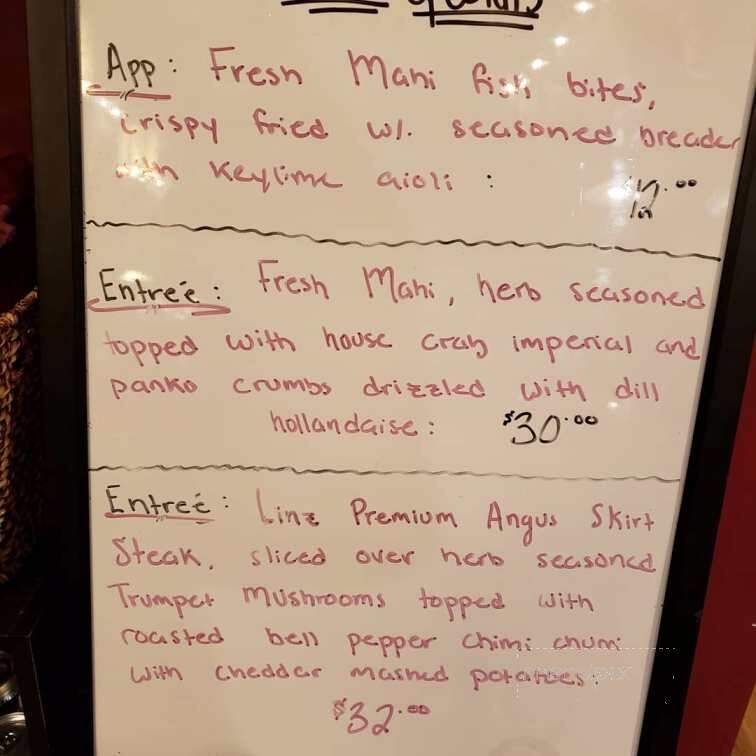 App: Fresh Mahi fish bites,
crispy fried w/. seasoned breader
with Keylime aioli : $12.00
Entreé: Fresh Mahi, herb seasoned
topped with house crab imperial and
panko crumbs drizzled with dill
hollandaise: $30.00
Entreé: Linz Premium Angus Skirt
Steak, sliced over herb seasoned
Trumpet mushrooms topped with
roasted bell pepper chimi churri
with chedder mashed potatoes:
$32.00